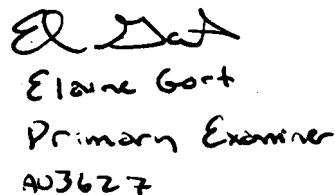 Elaine Gort
Primary Examiner
AU3627